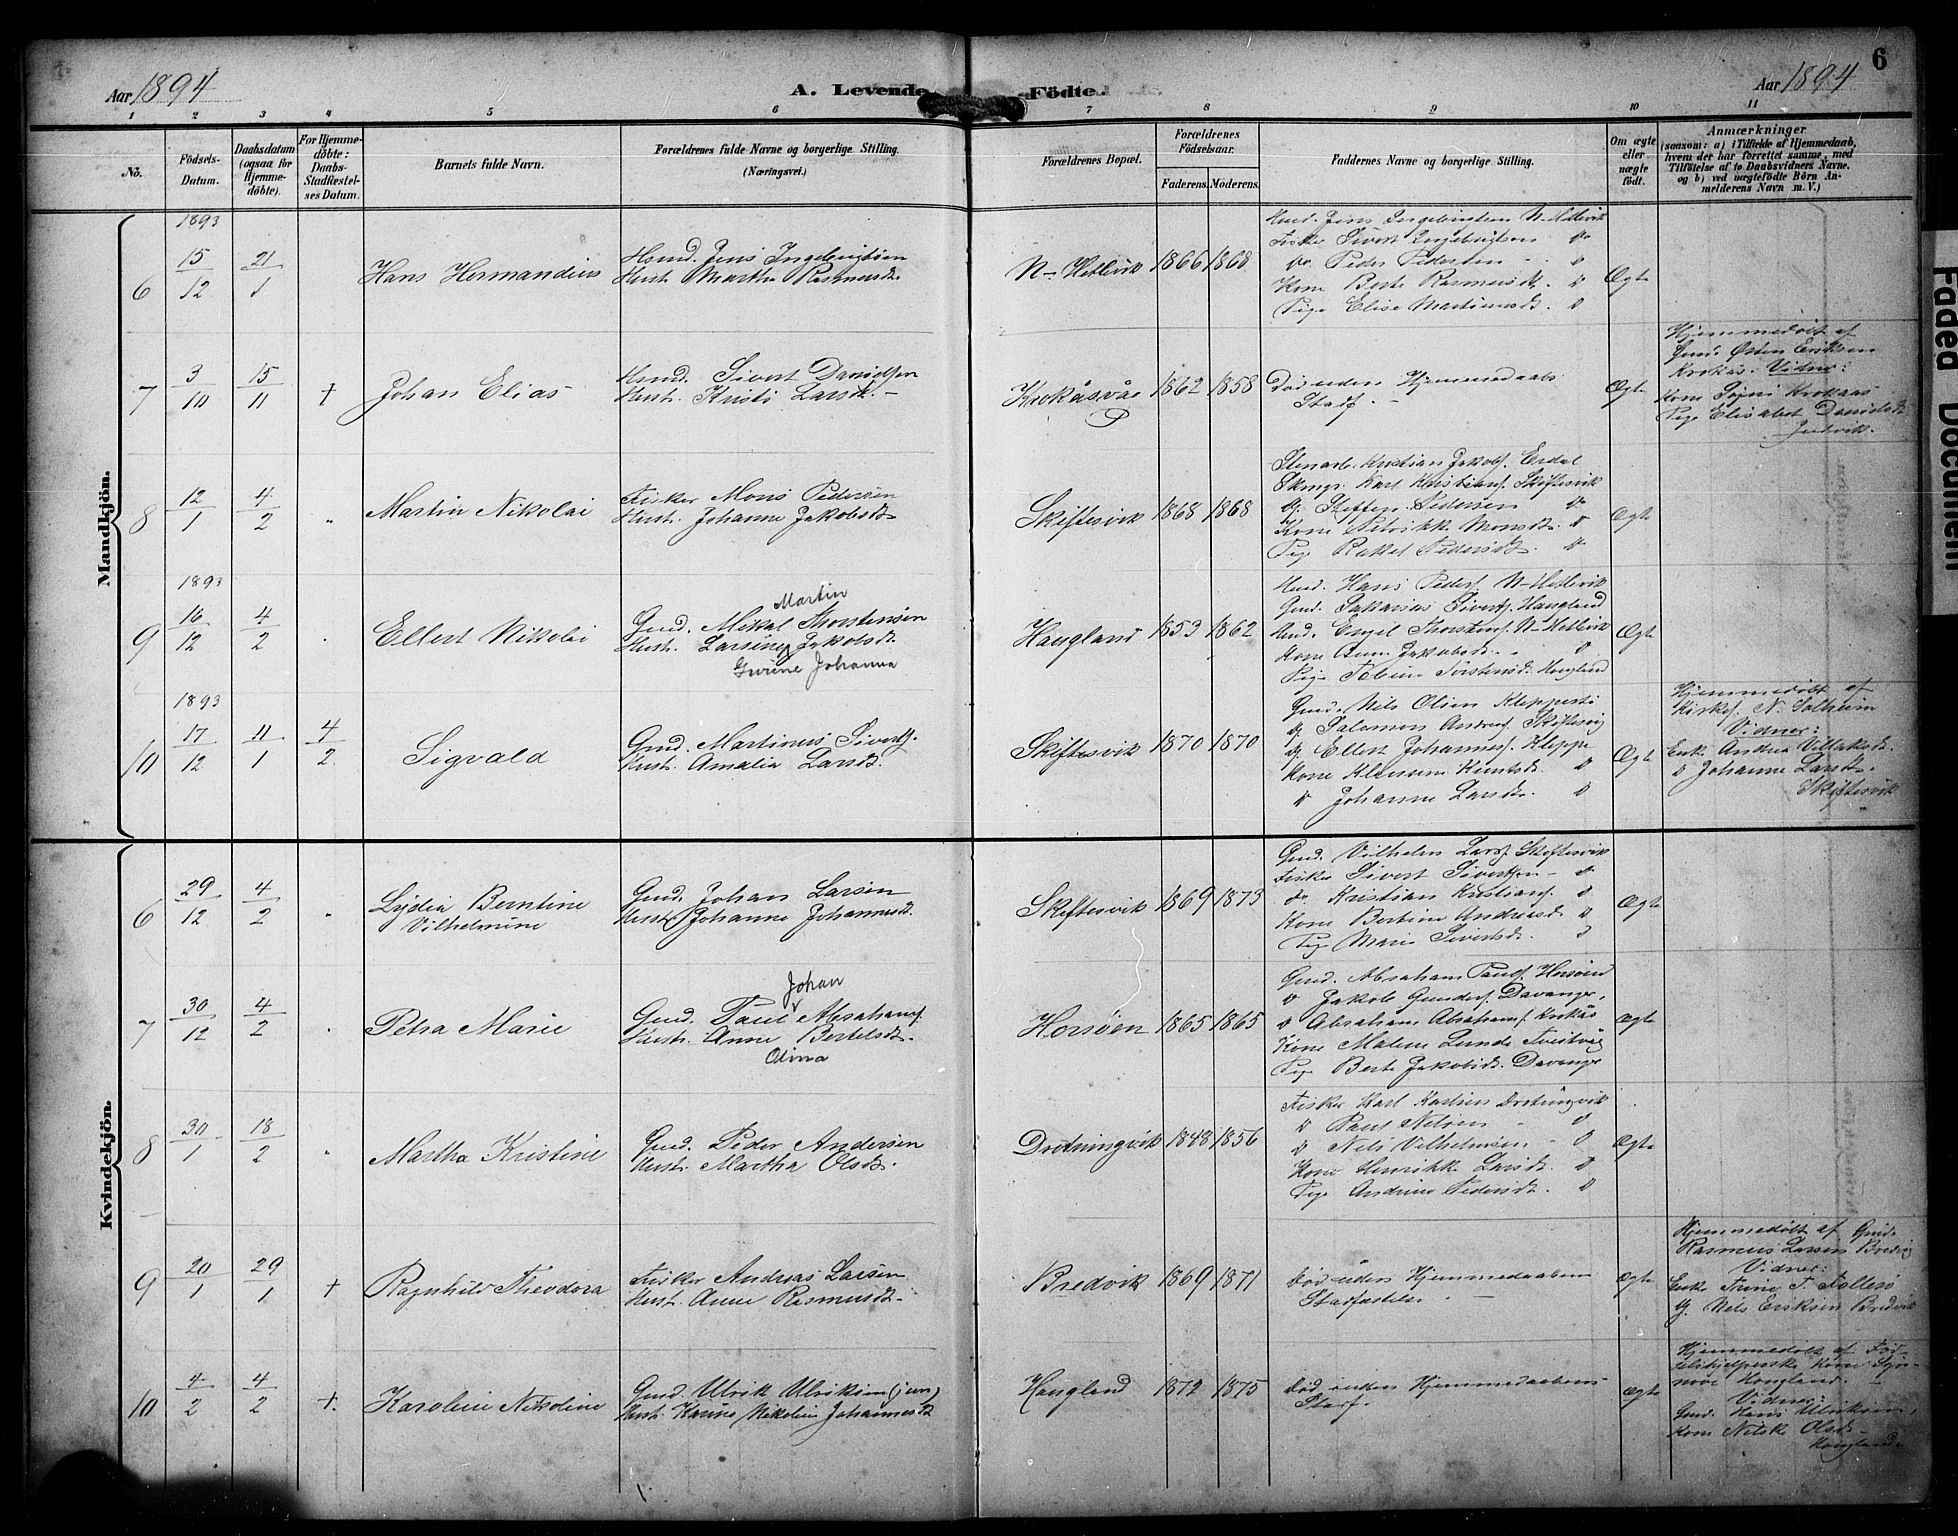 Aar 1894
A. Levende Födte.
Aar 1894
6
1 2 3 4 5 6 7 8 9 10 11
No.
Födsels-
Datum.
Daabsdatum
(ogsaa for
Hjemme-
döbte).
For Hjemme-
döbte:
Daabs-
Stadfæstel-
ses Datum.
Barnets fulde Navn.
Forældrenes fulde Navne og borgerlige Stilling.
(Næringsvei.)
Forældrenes Bopæl.
Forældrenes
Födselsaar.
Faderens. Moderens.
Faddernes Navne og borgerlige Stilling.
Om ægte
eller
uægte
födt.
Anmærkninger
(saasom: a) i Tilfælde af Hjemmedaab,
hvem der har forrettet samme, med
Tilföielse af to Daabsvidners Navne.
og b) ved uægtefödte Börn An-
melderens Navn m. V.)
Mandkjön.
1893
6
15/12
21/1
Hans Hermandius
Hsmd. Jens Ingebrigtsen
Hust. Martha Rasmusd.
N-Hetlevik
1866
1868
Hmd. Jens Ingebrigtsen N-Hetlevik
Fisker Sivert Ingebrigtsen do
do Peder Pedersen do
Kone Berte Rasmusd. do
Pige Elise Martinusd. do
Ægte
7
3/10
15/11
+
Johan Elias
Hsmd. Sivert Davidsen
Hust. Kristi Larsd. -
Krokåsvåg
P
1862
1858
Död uden Hjemmedaabs
Stadf. -
Ægte
Hjemmedöbt af
Gmd. Østen Eriksen
Krokås. Vidner:
Kone Krokaas
Pige Elisabet Davidsd.
8
12/1
4/2
"
Martin Nikolai
Fisker Mons Pedersen
Hust. Johanne Jakobsd.
Skiftesvik
1868
1868
Stenarb. Kristian Jakobs. Erdal
Karl Kristians. Skiftesvik
G. Steffen Pedersen do
Kone Monsd. do
Pige Rakel Pedersd. do
Ægte
1893
9
16/12
4/2
"
Ellert Nikolai
Martin
Gmd. Mikal Thorstensen
Hust. Larsine Jakobsd.
Gurine Johanna
Haugland
1853
1862
Hmd. Hans Peders. N-Hetlevik
Gmd. Sakarias Siverts. Haugland
Hmd. Engel Thorstens. N-Hetlevik
Kone Jakobsd. - do
Pige Torstensd. Haugland
Ægte
1893
10
17/12
11/1
4/2
Sigvald
Gmd. Martinus Siverts.
Hust. Amalia Larsd.
Skiftesvik
1870
1870
Gmd. Nils Olsen Kleppestö
G. Salomon Andreas. Skiftesvig
G. Ellert Johannes. Kleppe
Kone Knutsd. do
do Johanne Larsd. do
Ægte
Hjemmedöbt af
Kirkes. N. Solheim
Vidner:
Enke Andrea
do Johanne Larsd.
Skiftesvik
Kvindekjön.
6
29/12
4/2
"
Lydia Berntine
Vilhelmine
Gmd. Johan Larsen
Hust. Johanne Johannesd.
Skiftesvik
1869
1873
Gmd. Vilhelm Lars. Skiftesvik
Fisker Sivert Sivertsen - do
do Kristian Kristians. do
Kone Andreasd. do
Pige Marie Sivertsd. do
Ægte
7
30/12
4/2
"
Petra Marie
Johan
Gmd. Paul Abrahams.
Hust. Anne Bertelsd.
Olina
Horsöen
1865
1865
Gmd. Abraham Pauls. Horsöen
do Jakob Gunders. Davanger.
do Abraham Abrahams. Krokås
Kone Malene Lunde Tveitvåg
Pige Berte Jakobsd. Davanger
Ægte
8
30/1
18/2
"
Martha Kristine
Gmd. Peder Andersen
Hust. Martha Olsd.
Drotningvik
1848
1856
Fisker Karl Karlsen Drotningvik
do Paul Nilsen - do
do Nils Vilhelmsen - do
Kone Henrikke Larsd. do
Pige Andrine Pedersd. do
Ægte
9
20/1
29/1
+
Ragnhild Theodora
Fisker Andreas Larsen
Hust. Anne Rasmusd. -
Bredvik
1869
1871
Död uden Hjemmedaabens
Stadfæstelse -
Ægte
Hjemmedöbt af Gmd.
Rasmus Larsen Bredvig
Vidner:
Enke Trine T. Follesø
G. Nils Eriksen Bredvik
10
4/2
4/2
+.
Karoline Nikoline
Gmd. Ulrik Ulriksen (jun)
Hust. Karine Nikoline Johannesd.
Haugland
1872
1875
Död uden Hjemmedaabens
Stadf.
Ægte
Hjemmedöbt af Föd-
selshjelperske Kone Syn-
növe Haugland. -
Vidner:
Gmd. Hans Ulriksen,
Kone Olsd. -
Haugland.
Faded Document